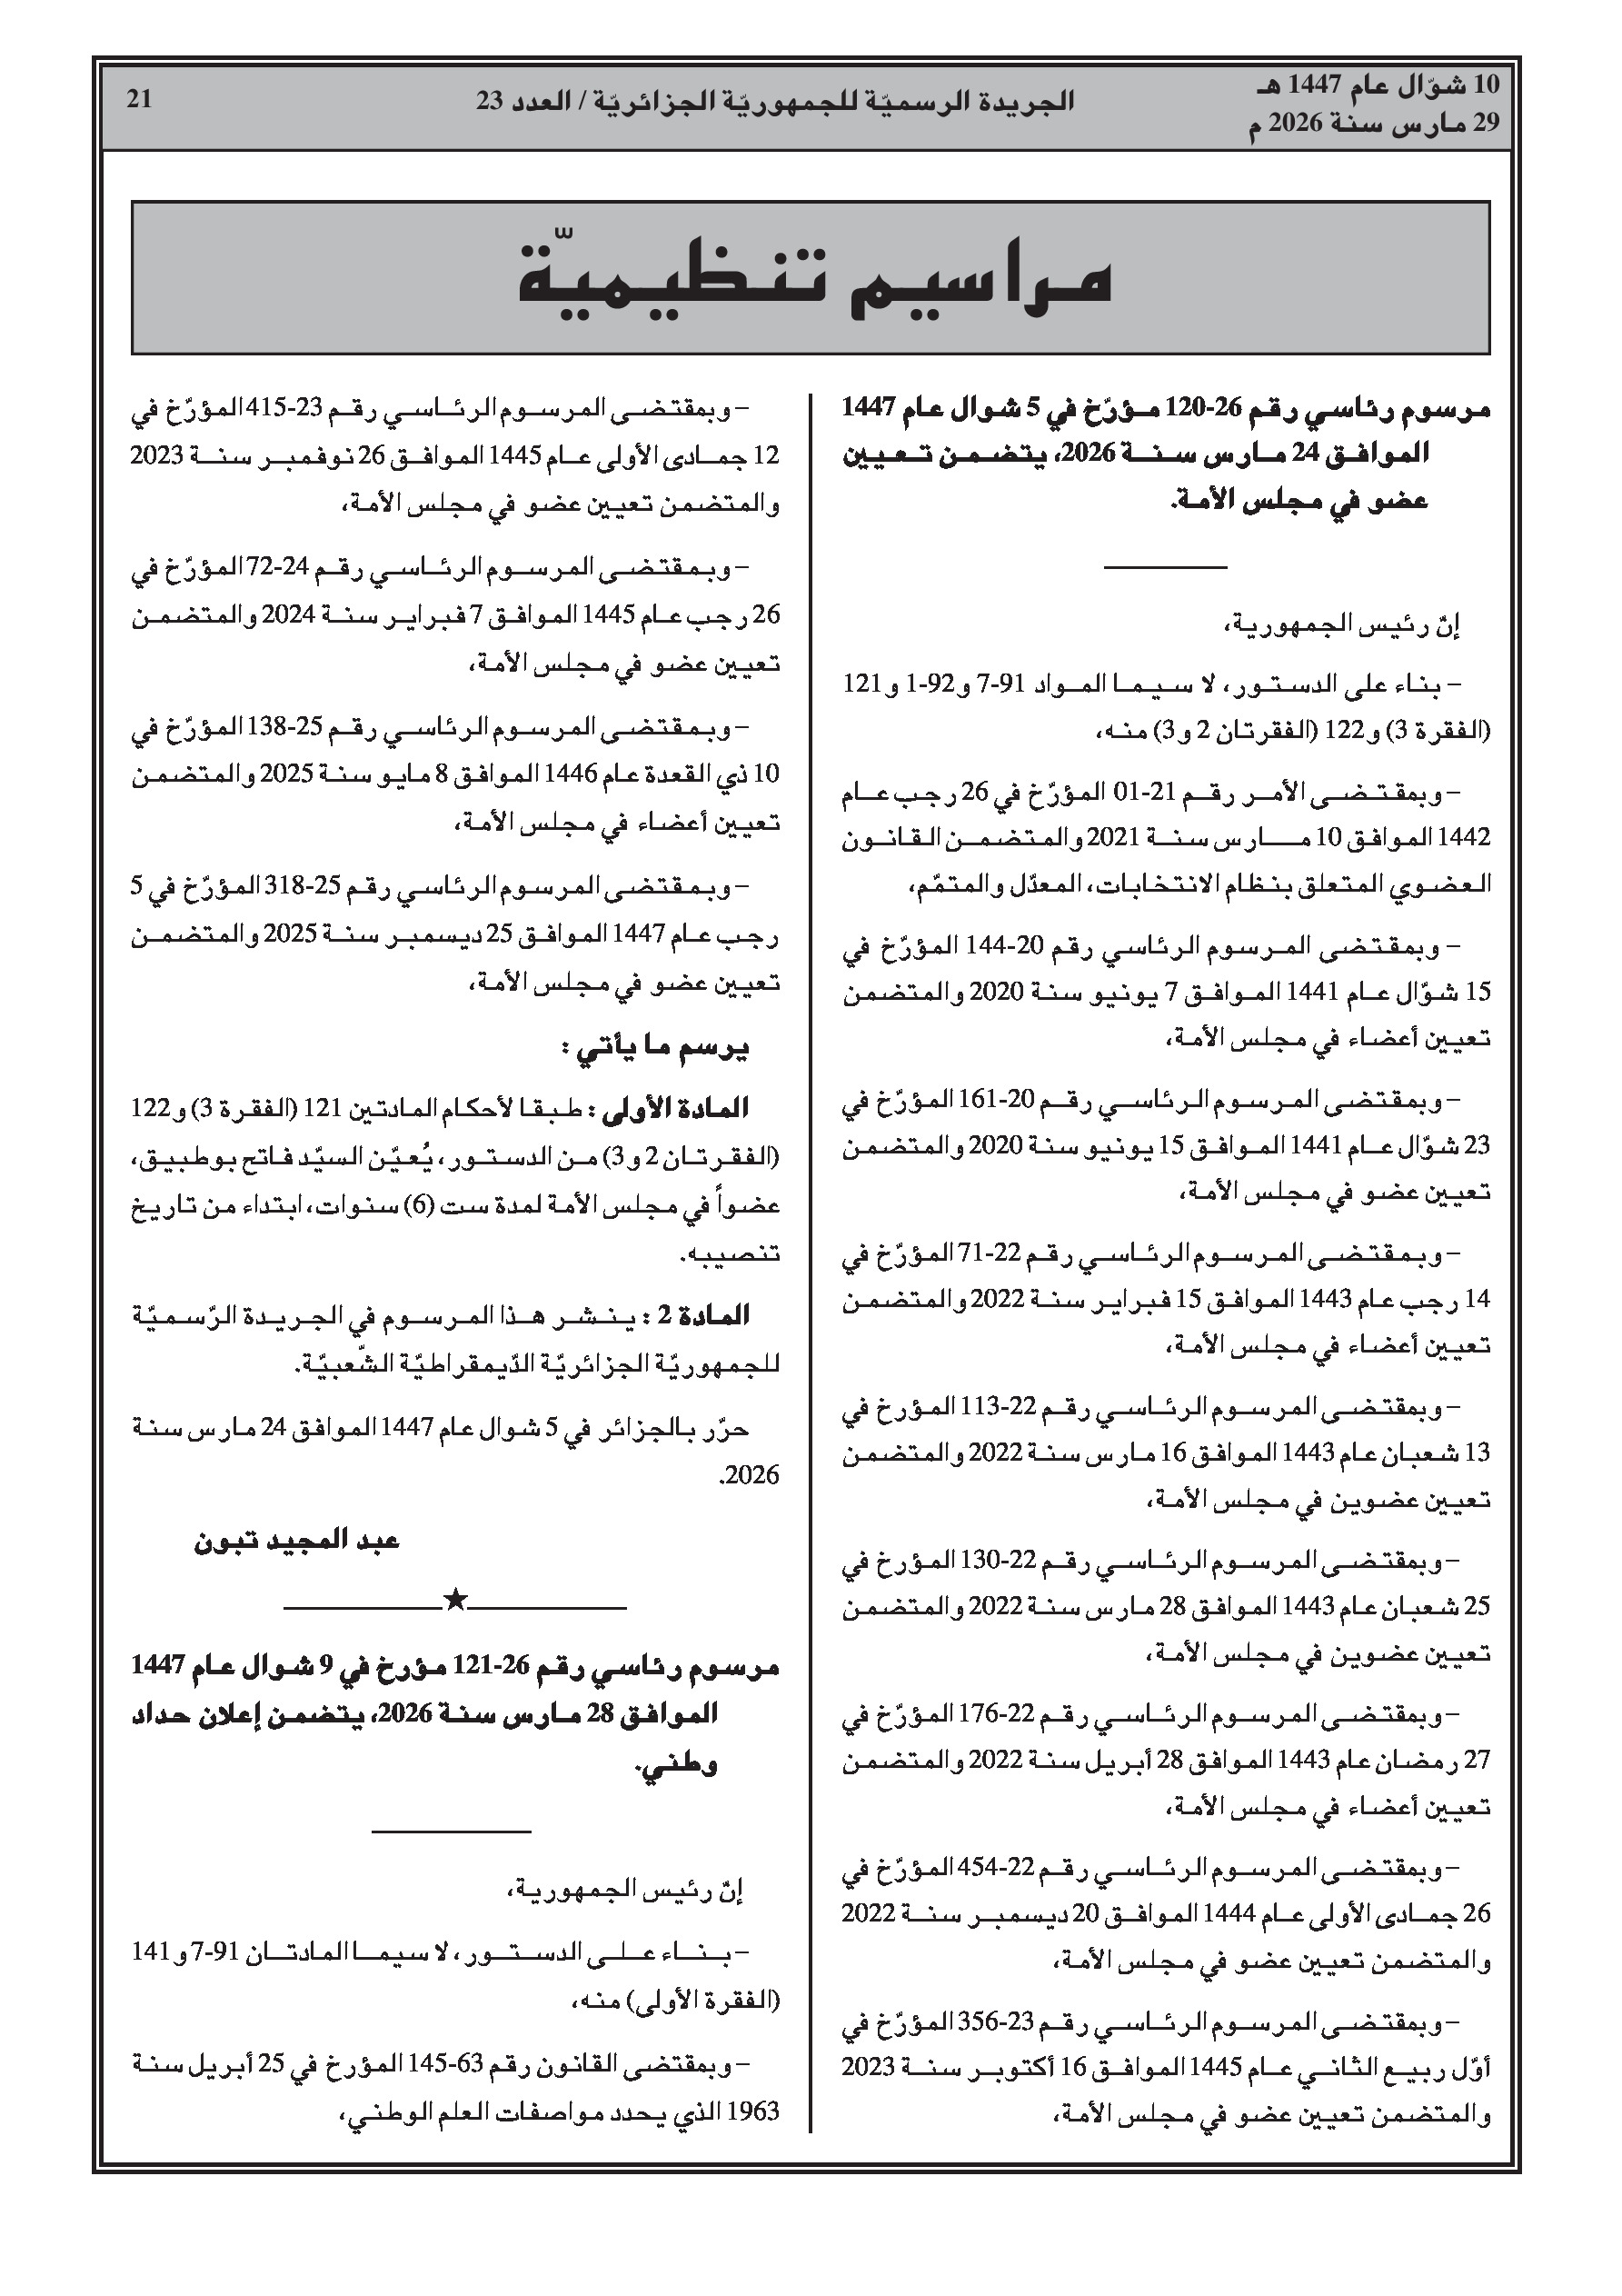 10 شوّال عام 1447 هـ
29 مارس سنة 2026 م
الجريدة الرسميّة للجمهوريّة الجزائريّة / العدد 23
21
مراسيم تنظيميّة
مرسوم رئاسي رقم 26-120 مؤرّخ في 5 شوال عام 1447
الموافق 24 مارس سنة 2026، يتضمن تعيين
عضو في مجلس الأمة.
إنّ رئيس الجمهورية،
– بناء على الدستور، لا سيما المواد 91-7 و92-1 و121
(الفقرة 3) و122 (الفقرتان 2 و3) منه،
– وبمقتضى الأمر رقم 21-01 المؤرّخ في 26 رجب عام
1442 الموافق 10 مارس سنة 2021 والمتضمن القانون
العضوي المتعلق بنظام الانتخابات، المعدّل والمتمّم،
– وبمقتضى المرسوم الرئاسي رقم 20-144 المؤرّخ في
15 شوّال عام 1441 الموافق 7 يونيو سنة 2020 والمتضمن
تعيين أعضاء في مجلس الأمة،
– وبمقتضى المرسوم الرئاسي رقم 20-161 المؤرّخ في
23 شوّال عام 1441 الموافق 15 يونيو سنة 2020 والمتضمن
تعيين عضو في مجلس الأمة،
– وبمقتضى المرسوم الرئاسي رقم 22-71 المؤرّخ في
14 رجب عام 1443 الموافق 15 فبراير سنة 2022 والمتضمن
تعيين أعضاء في مجلس الأمة،
– وبمقتضى المرسوم الرئاسي رقم 22-113 المؤرخ في
13 شعبان عام 1443 الموافق 16 مارس سنة 2022 والمتضمن
تعيين عضوين في مجلس الأمة،
– وبمقتضى المرسوم الرئاسي رقم 22-130 المؤرخ في
25 شعبان عام 1443 الموافق 28 مارس سنة 2022 والمتضمن
تعيين عضوين في مجلس الأمة،
– وبمقتضى المرسوم الرئاسي رقم 22-176 المؤرّخ في
27 رمضان عام 1443 الموافق 28 أبريل سنة 2022 والمتضمن
تعيين أعضاء في مجلس الأمة،
– وبمقتضى المرسوم الرئاسي رقم 22-454 المؤرّخ في
26 جمادى الأولى عام 1444 الموافق 20 ديسمبر سنة 2022
والمتضمن تعيين عضو في مجلس الأمة،
– وبمقتضى المرسوم الرئاسي رقم 23-356 المؤرّخ في
أوّل ربيع الثاني عام 1445 الموافق 16 أكتوبر سنة 2023
والمتضمن تعيين عضو في مجلس الأمة،
– وبمقتضى المرسوم الرئاسي رقم 23-415 المؤرّخ في
12 جمادى الأولى عام 1445 الموافق 26 نوفمبر سنة 2023
والمتضمن تعيين عضو في مجلس الأمة،
– وبمقتضى المرسوم الرئاسي رقم 24-72 المؤرّخ في
26 رجب عام 1445 الموافق 7 فبراير سنة 2024 والمتضمن
تعيين عضو في مجلس الأمة،
– وبمقتضى المرسوم الرئاسي رقم 25-138 المؤرّخ في
10 ذي القعدة عام 1446 الموافق 8 مايو سنة 2025 والمتضمن
تعيين أعضاء في مجلس الأمة،
– وبمقتضى المرسوم الرئاسي رقم 25-318 المؤرّخ في 5
رجب عام 1447 الموافق 25 ديسمبر سنة 2025 والمتضمن
تعيين عضو في مجلس الأمة،
يرسم ما يأتي :
المادة الأولى : طبقا لأحكام المادتين 121 (الفقرة 3) و122
(الفقرتان 2 و3) من الدستور، يُعيّن السيّد فاتح بوطبيق،
عضواً في مجلس الأمة لمدة ست (6) سنوات، ابتداء من تاريخ
تنصيبه.
المادة 2 : ينشر هذا المرسوم في الجريدة الرّسميّة
للجمهوريّة الجزائريّة الدّيمقراطيّة الشّعبيّة.
حرّر بالجزائر في 5 شوال عام 1447 الموافق 24 مارس سنة
2026.
عبد المجيد تبون
مرسوم رئاسي رقم 26-121 مؤرخ في 9 شوال عام 1447
الموافق 28 مارس سنة 2026، يتضمن إعلان حداد
وطني.
إنّ رئيس الجمهورية،
– بناء على الدستور، لا سيما المادتان 91-7 و141
(الفقرة الأولى) منه،
– وبمقتضى القانون رقم 63-145 المؤرخ في 25 أبريل سنة
1963 الذي يحدد مواصفات العلم الوطني،